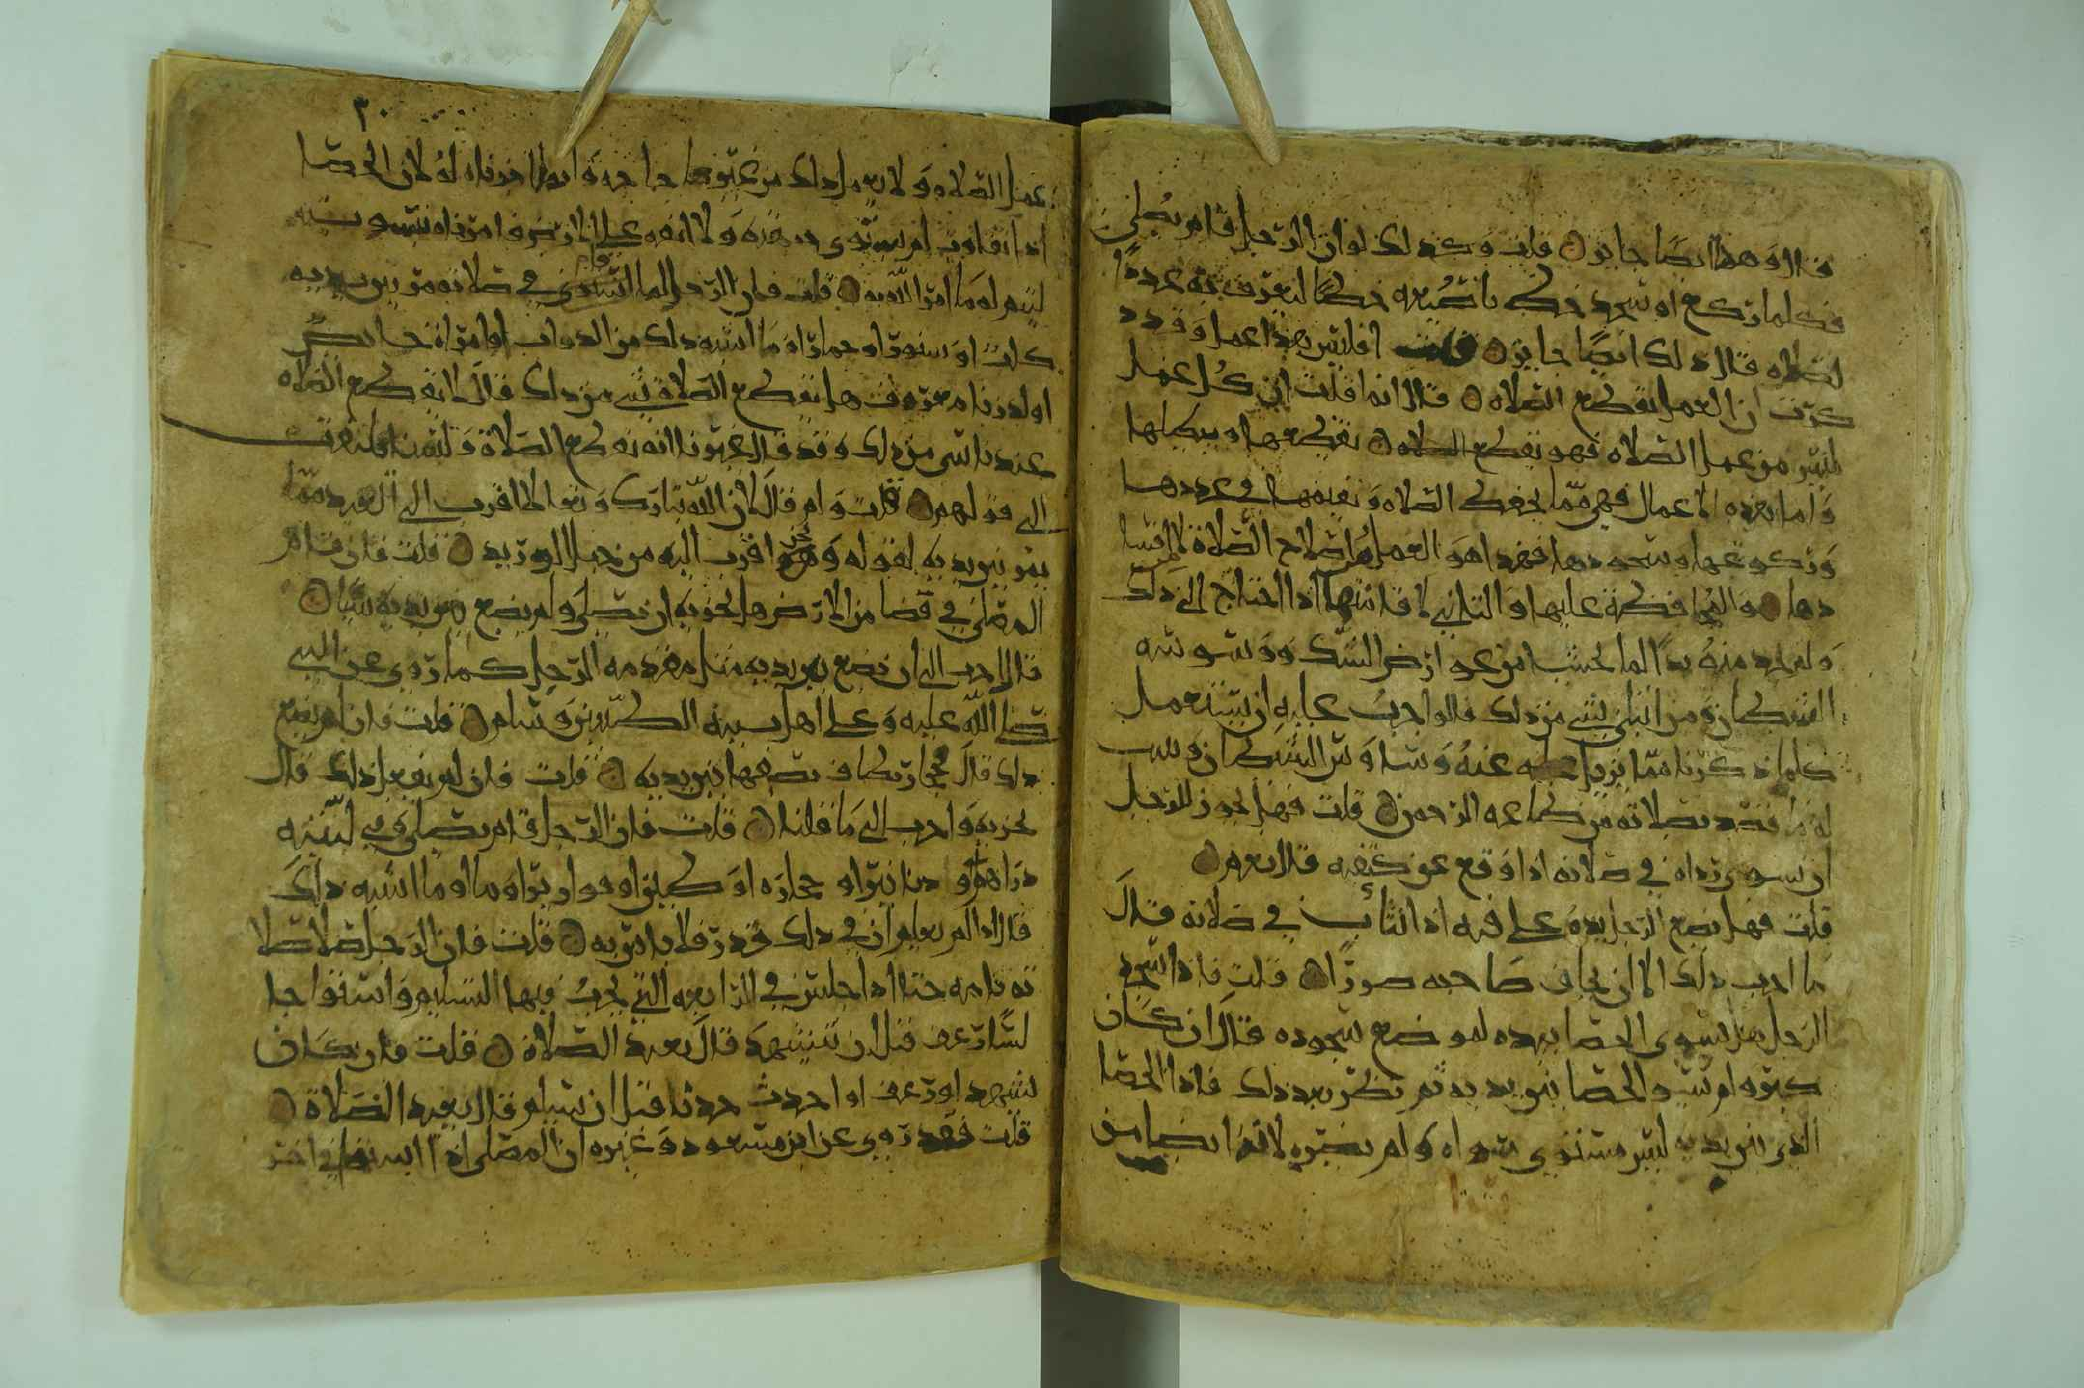 قال وهذا ايضا جايز قلت وكذلك لو ان الرجل قام يصلي
فكلما ركع او سجد خط باصبعه خطا ليعرف به عدد
الصلاه قال ذلك ايضا جايز قلت افليس هذا عملا وقد
ذكرت ان العمل يقطع الصلاه قال انما قلت ان كل عمل
ليس من عمل الصلاه فهو يقطع الصلاه يقطعها او يبطلها
واما هذه الاعمال فهي مما يحفظ الصلاه ويقيمها في عددها
وركوعها وسجودها فهذا هو العمل لاصلاح الصلاة لا
عليها اذا احتاج الى ذلك
ولم يجد منه بدا لما يخشى من عوارض الشك ووسوسه
الشيطان ومن ابتلي بشي من ذلك فالواجب عليه ان يستعمل
كلما ذكرنا مما عنه وساوس الشيطان
له ما قصد بصلاته من طاعه الرحمن قلت فهل يجوز للرجل
ان يسوي رداه في صلاته اذا وقع عن كتفه قال نعم
قلت فهل يضع الرجل يده على فيه اذا تثاب في صلاته قال
ما احب ذلك الا ان يخاف صاحبه ضررا قلت فاذا سجد
الرجل هل يسوي الحصا بيده لموضع سجوده قال ان كان
كبره ام سوى الحصا بين يديه ثم نظر بعد ذلك فاذا الحصا
الذي بين يديه ليس مستوي سواه ولم يضره لانه ايضا من
٣٠
عمل الصلاه ولا يعمل ذلك من غير حاجه وانما اجزناه له لان الحصا
اذا تفاوت لم يستوي وجهه ولا انفه على الارض فامرناه بتسويته
ليتم له ما امر الله به قلت فان الرجل في صلاته مر بين يديه
كلب او سنور او حمار او ما اشبه ذلك من الدواب او امراة حايض
هل يقطع الصلاة شي من ذلك قال لا يقطع الصلاه
عندنا شي من ذلك وقد قال غيرنا انه يقطع الصلاة ولسنا نلتفت
الى قولهم قلت ولم قال لان الله تبارك وتعالى اقرب الى العبد مما
يمر بين يديه لقوله ونحن اقرب اليه من حبل الوريد قلت فان قام
المصلي في فضا من الارض هل يجزيه ان يصلي ولم يضع بين يديه شيا
قال احب الي ان يضع بين يديه مثل مقدمه الرحل كما روي عن النبي
صلى الله عليه وعلى اهل بيته الطيبين وسلم قلت فان لم يضع
ذلك قال حجارة يصفها بين يديه قلت فان لم يفعل ذلك قال
يجزيه واحب الي ما قلنا قلت فان الرجل قام يصلي وفي
دراهم او دنانير او حجاره او طين او قوارير او ما اشبه ذلك
قال اذا لم يعلم ان في ذلك قذر فلا باس به قلت فان الرجل صلا صلا
ته تامه حتا اذا جلس في الرابعه التي يجب فيها التسليم واستوا جا
لسا رعف قبل ان يتشهد قال يعيد الصلاة قلت فان كان
تشهد او رعف او احدث حدثا قبل ان يسلم قال يعيد الصلاة
قلت فقد روي عن ابن مسعود وغيره ان المصلي اذا استوا في اخر